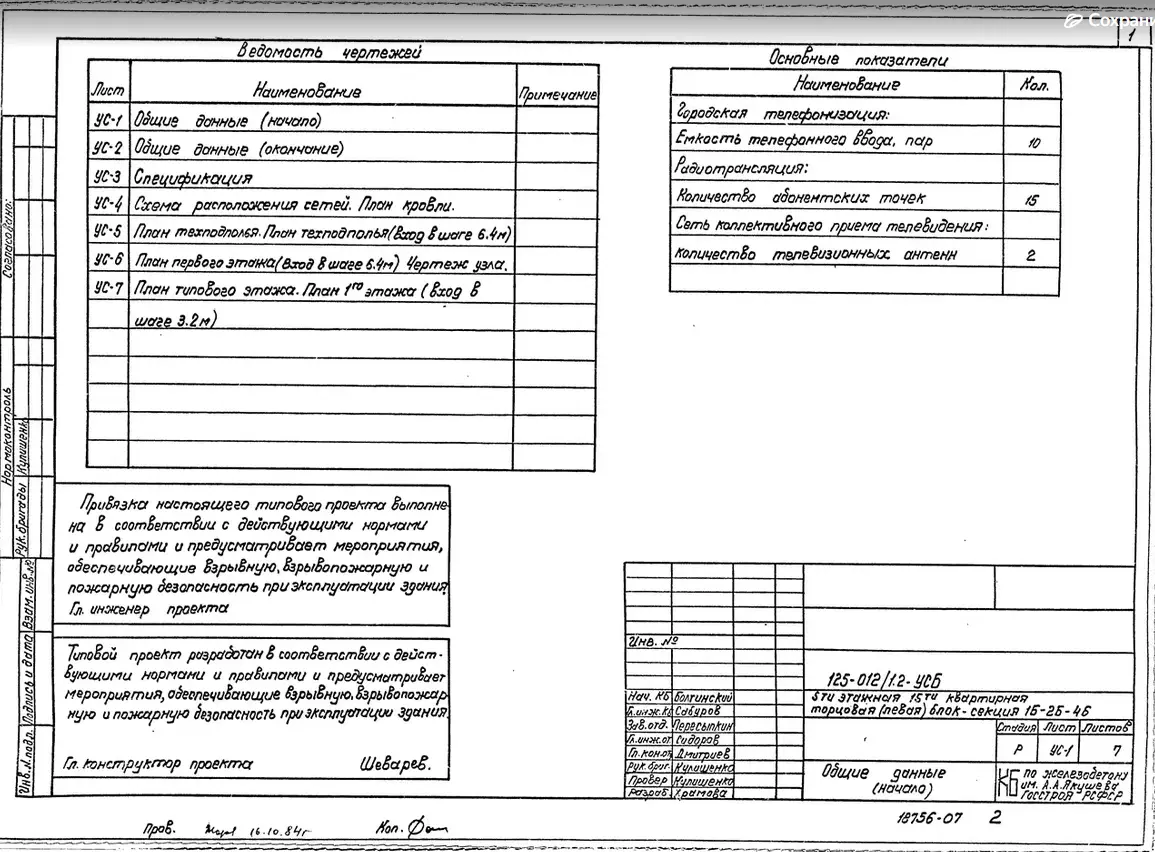 Сохрани
1
Ведомость чертежей
Лист Наименование Примечание
УС-1 Общие данные (начало)
УС-2 Общие данные (окончание)
УС-3 Спецификация
УС-4 Схема расположения сетей. План кровли.
УС-5 План техподполья. План техподполья (вход в шаге 6.4м)
УС-6 План первого этажа (вход в шаге 6.4м) Чертеж узла.
УС-7 План типового этажа. План 1го этажа (вход в
шаге 3.2м)
Основные показатели
Наименование Кол.
Городская телефонизация:
Емкость телефонного ввода, пар 10
Радиотрансляция:
Количество абонентских точек 15
Сеть коллективного приема телевидения:
количество телевизионных антенн 2
Согласовано:
Нормоконтроль
Рук. бригады Кулишенко
Взам. инв. №
Подпись и дата
Инв. № подл.
Привязка настоящего типового проекта выполне-
на в соответствии с действующими нормами
и правилами и предусматривает мероприятия,
обеспечивающие взрывную, взрывопожарную и
пожарную безопасность при эксплуатации здания
Гл. инженер проекта
Типовой проект разработан в соответствии с дейст-
вующими нормами и правилами и предусматривает
мероприятия, обеспечивающие взрывную, взрывопожар
ную и пожарную безопасность при эксплуатации здания.
Гл. конструктор проекта Шеварев.
Инв. №
Нач. КБ Болтинский
Гл.инж.КБ Сабуров
Зав.отд. Пересыпкин
Гл.инж.от Сидоров
Гл.кон.от Дмитриев
Рук.бриг. Кулишенко
Провер Кулишенко
Разраб Храмова
125-012/1.2-УСБ
5ти этажная 15ти квартирная
торцовая (левая) блок-секция 1Б-2Б-4Б
Стадия Лист Листов
Р УС-1 7
Общие данные
(начало)
КБ по железобетону
им. А.А.Якушева
Госстроя РСФСР
18756-07 2
Пров. 16.10.84г Коп.